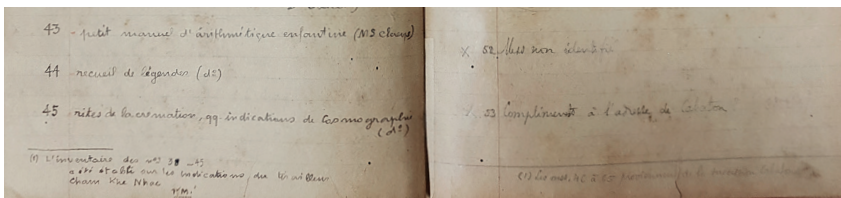 43 - petit manuel d'arithmétique enfantine (MS cham)
44 recueil de légendes (dº)
45 rites de la crémation, qq. indications de Cosmographie
(dº)
(1) L'inventaire des nos 38 - 45
a été établi sur les indications du travailleur
Cham Khe Nhoc
P.M.
X 52. Mss non identifié
X 53 Compliments à l'adresse de Cabaton
(1) Les mss. 46 à 55 proviennent de la